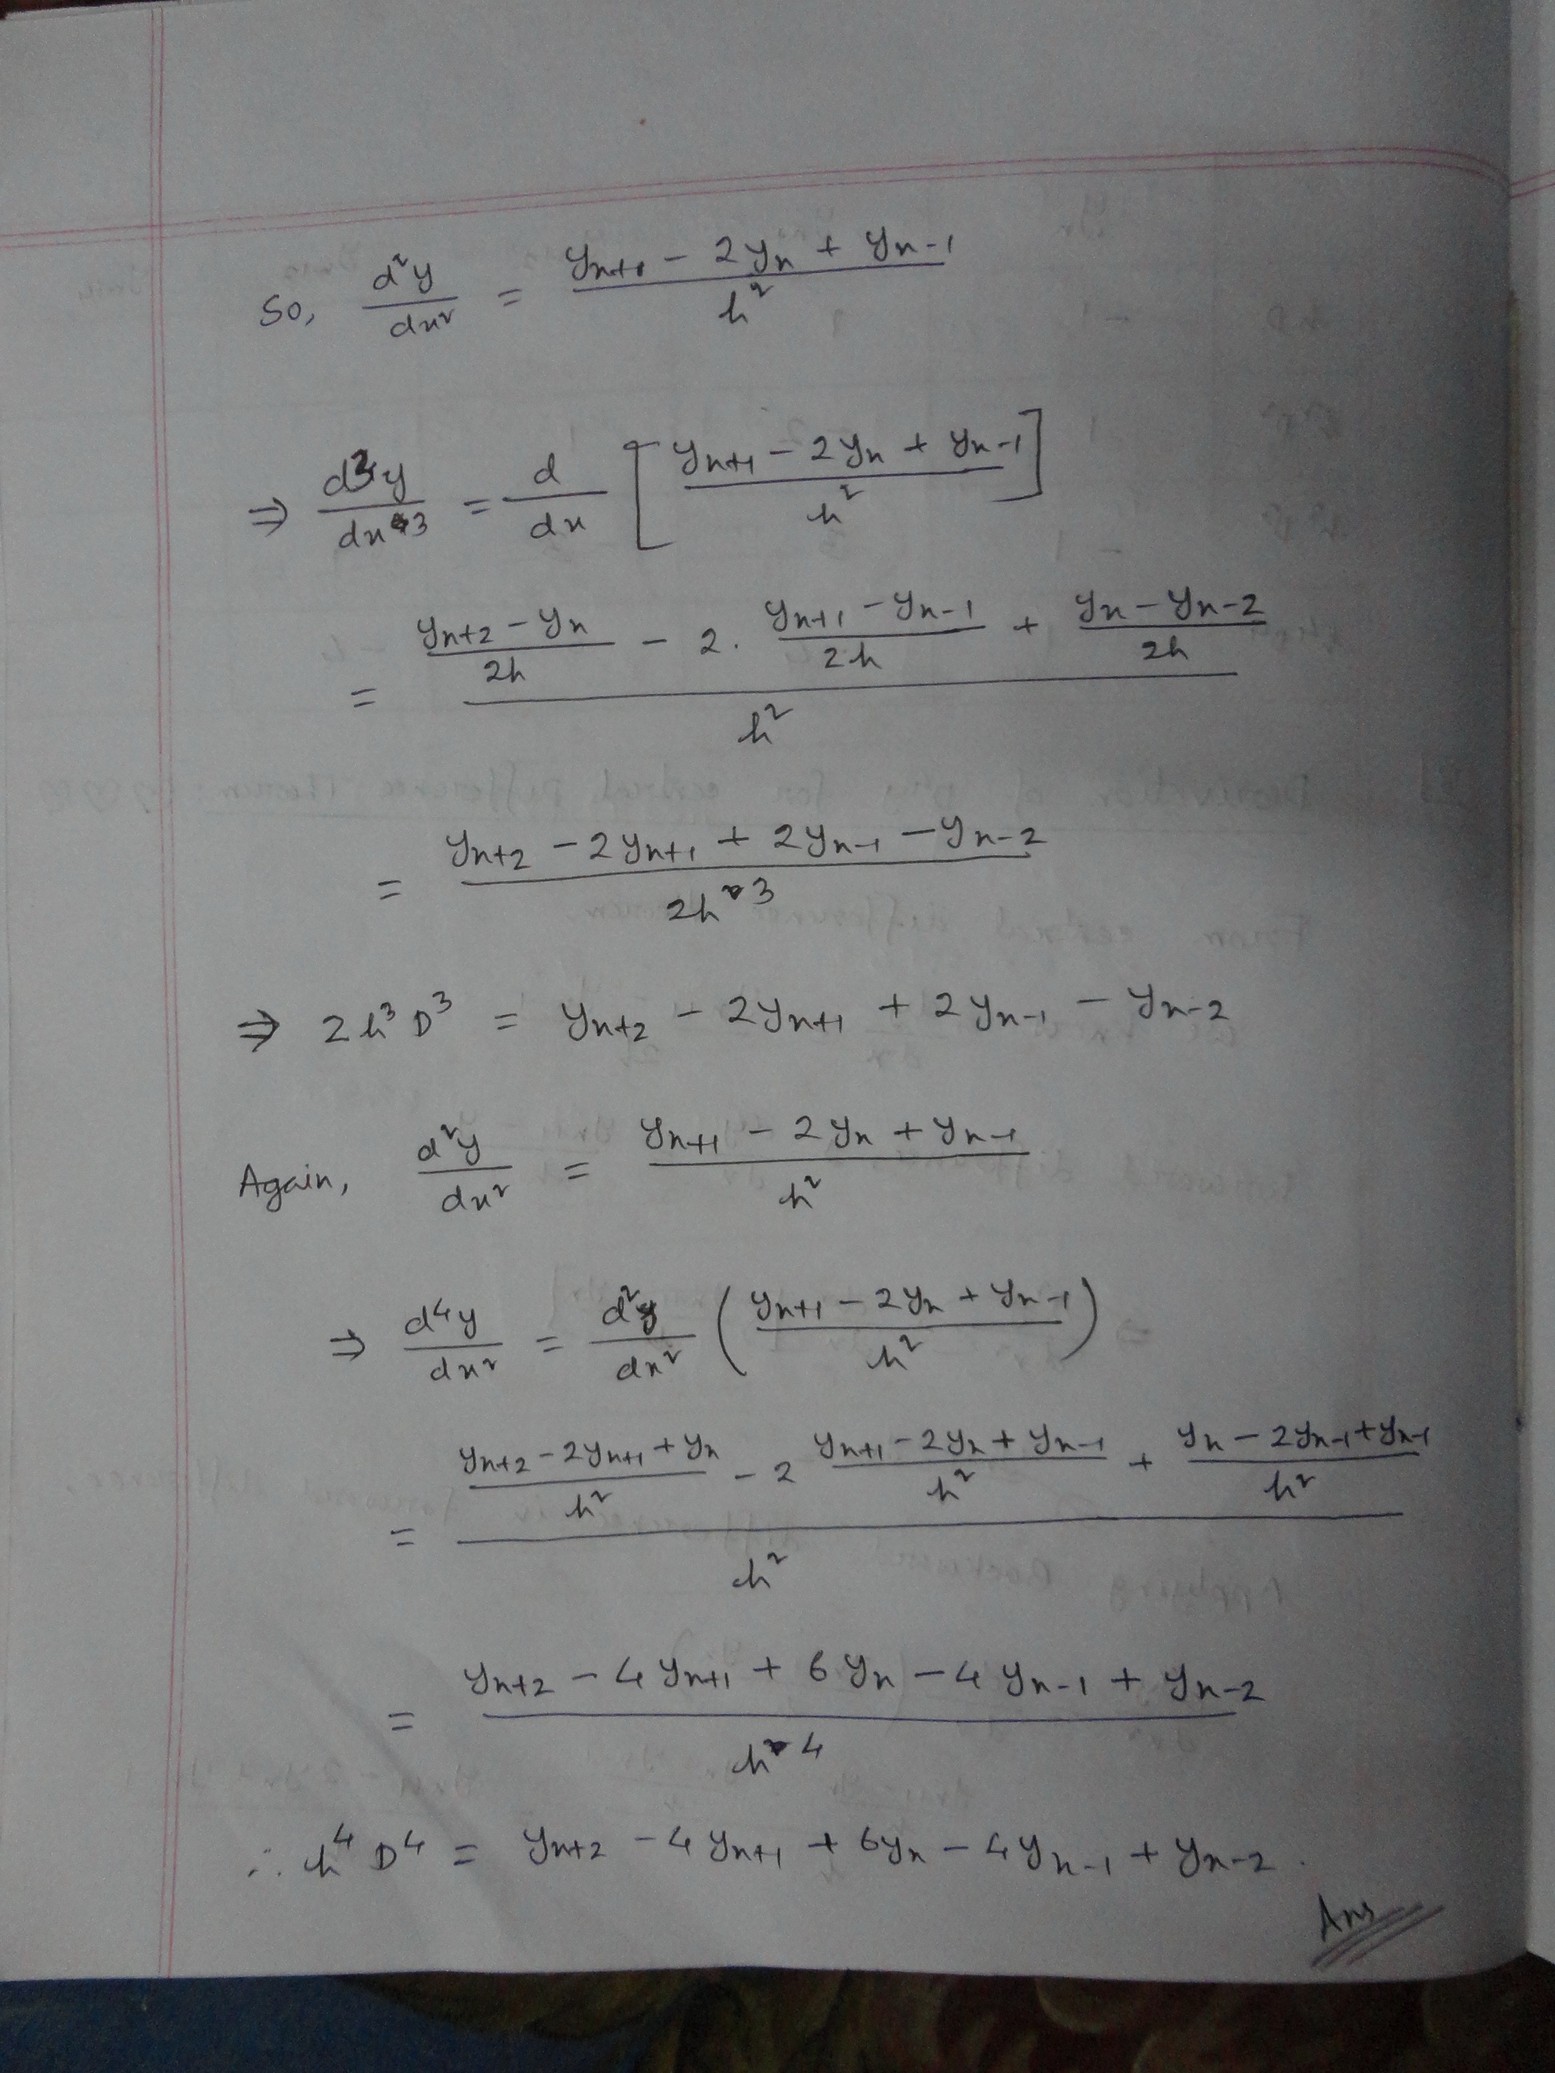 So, d²y/dx² = (yn+1 - 2yn + yn-1)/h²
⇒ d³y/dx³ = d/dx [(yn+1 - 2yn + yn-1)/h²]
= ((yn+2 - yn)/2h - 2. (yn+1 - yn-1)/2h + (yn - yn-2)/2h)/h²
= (yn+2 - 2yn+1 + 2yn-1 - yn-2)/2h³
⇒ 2h³D³ = yn+2 - 2yn+1 + 2yn-1 - yn-2
Again, d²y/dx² = (yn+1 - 2yn + yn-1)/h²
⇒ d⁴y/dx² = d²y/dx² ((yn+1 - 2yn + yn-1)/h²)
= ((yn+2 - 2yn+1 + yn)/h² - 2 (yn+1 - 2yn + yn-1)/h² + (yn - 2yn-1 + yn-1)/h²)/h²
= (yn+2 - 4yn+1 + 6yn - 4yn-1 + yn-2)/h⁴
∴ h⁴D⁴ = yn+2 - 4yn+1 + 6yn - 4yn-1 + yn-2.
Ans